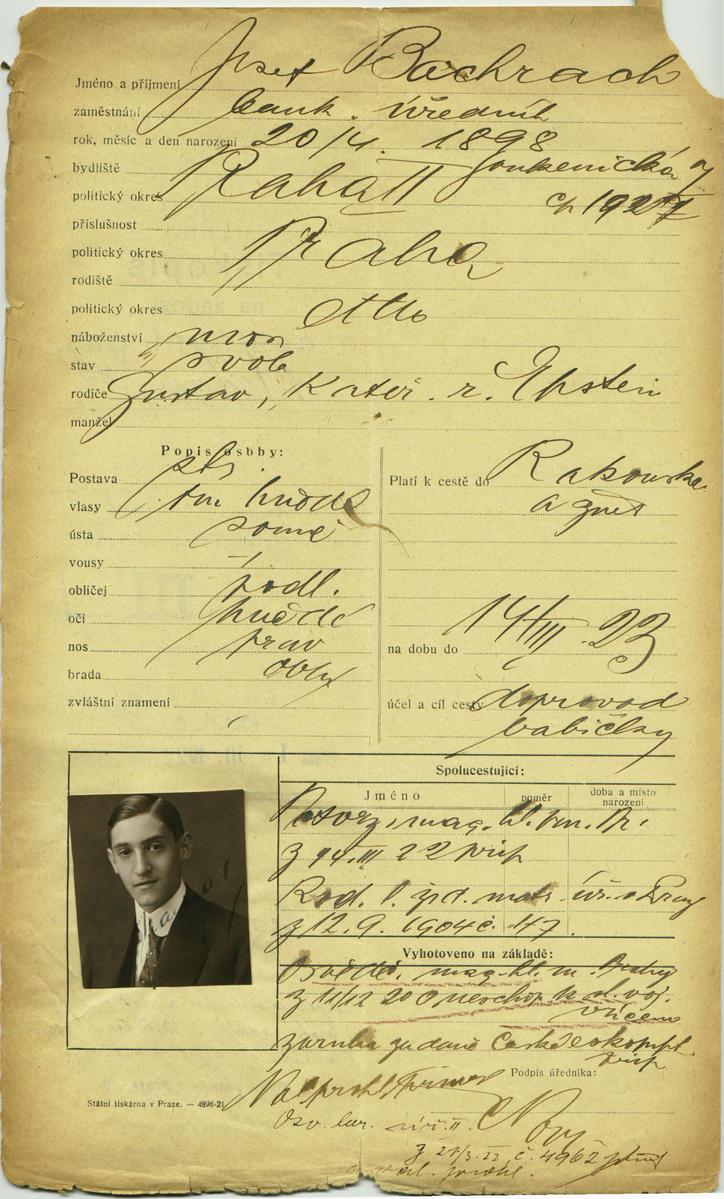 Jméno a příjmení Josef Bachrach
zaměstnání bank. úředník
rok, měsíc a den narození 20/4. 1898
bydliště Praha II Soukenická
politický okres čp 1927
příslušnost
politický okres Praha
rodiště
politický okres
náboženství
stav svob
rodiče Gustav, Kateř. r. Epstein
manžel
Popis osoby:
Postava stř.
vlasy tm hnědé
ústa
vousy
obličej podl.
oči hnědé
nos prav
brada oblá
zvláštní znamení
Platí k cestě do Rakouska
a zpět
na dobu do 14/III. 23
účel a cíl cesty doprovod
babičky
Spolucestující:
Jméno poměr doba a místo narození
Potvrz. mag. hl. m. Pr.
z 14. III 22
Rod. l. žid. matr. úř. v Praze
z 12. 9. 1904 č. 47.
Vyhotoveno na základě:
Osvědč. mag. hl. m. Prahy
z 11/12 20 o neschop. k d. voj.
záruka za daně
Podpis úředníka:
Státní tiskárna v Praze. — 4898-21
z 21/3. 22 č. 4962